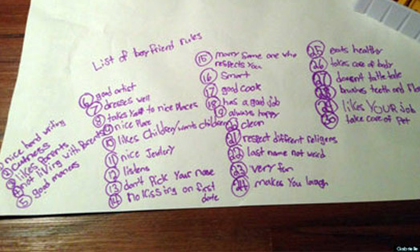 List of boyfriend rules
1 nice hand writing
2 cuteness
3 likes parents
4 not living with parents
5 good manners
6 good artist
7 dresses well
8 takes you to nice places
9 nice hair
10 likes Children/wants children
11 nice Jewlery
12 listens
13 don't Pick Your nose
14 No Kissing on first
date
15 marry some one who
respects you
16 Smart
17 good cook
18 has a good job
19 always happy
20 clean
21 respect different religens
22 last name not weird
23 very fun
24 makes You laugh
25 eats healthy
26 takes care of body
27 doesent talk back
28 brushes teeth and
29 likes YOUR job
30 take care of Pet